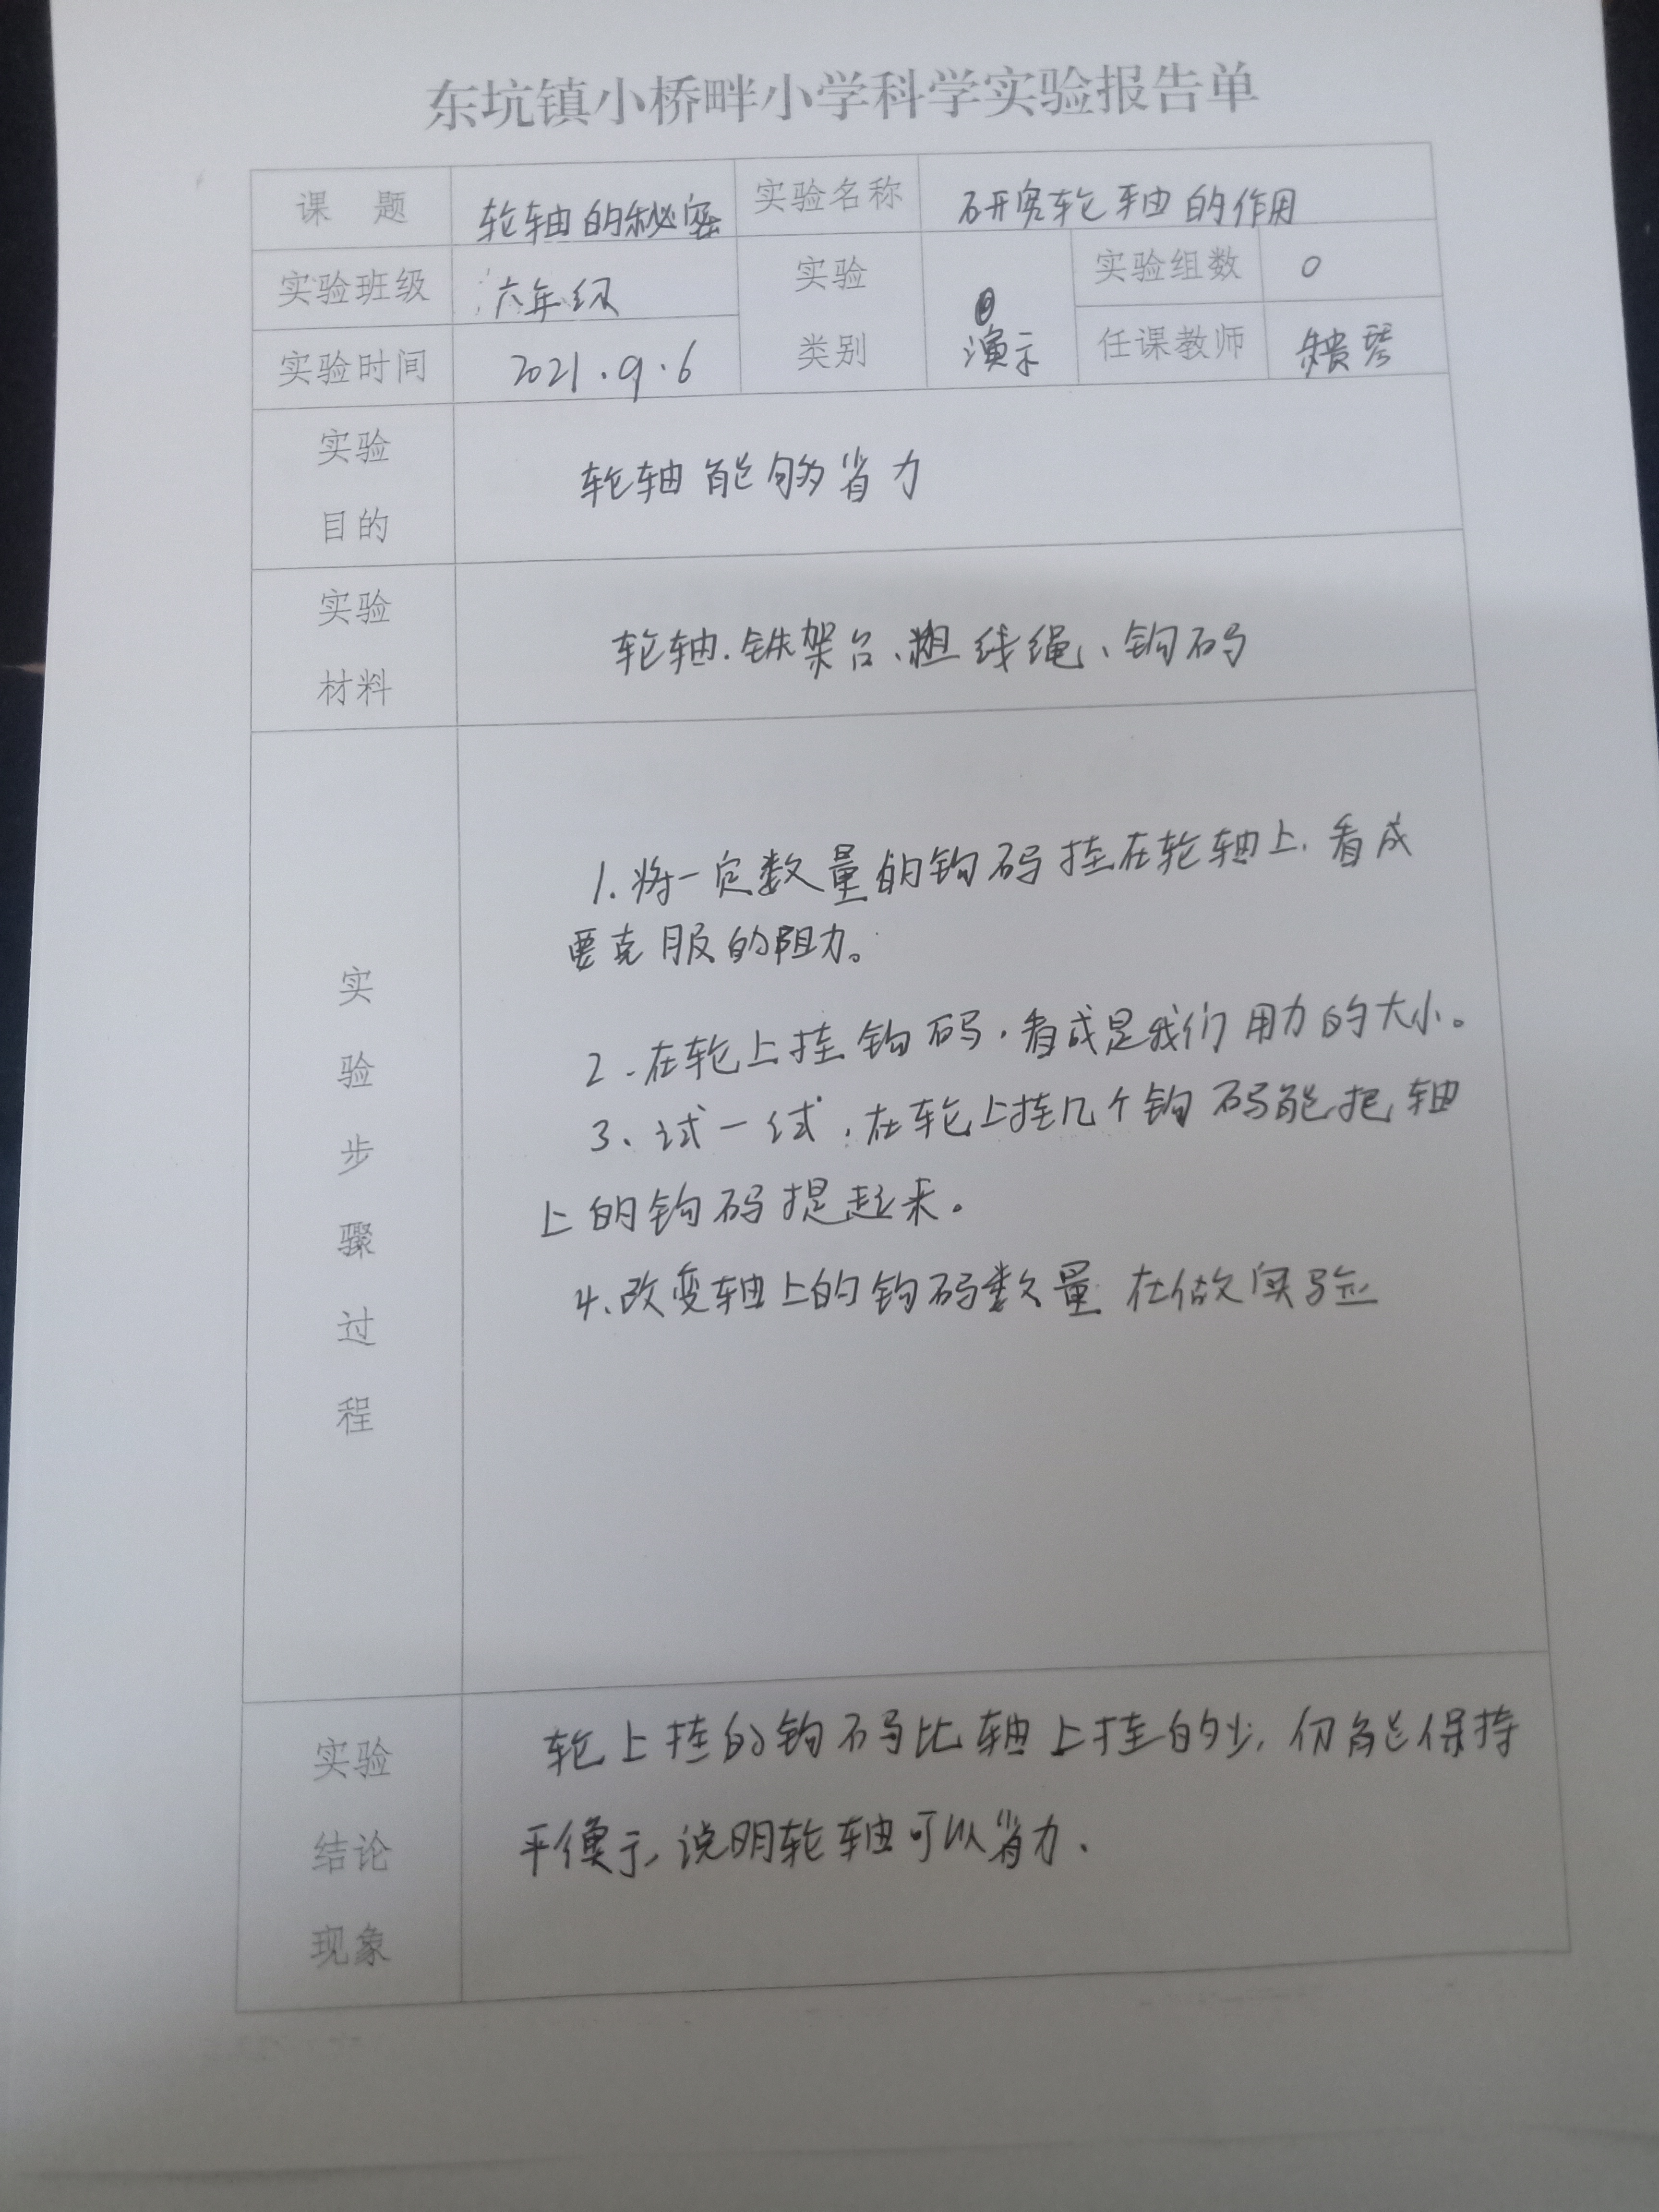 东坑镇小桥畔小学科学实验报告单
课 题 轮轴的秘密 实验名称 研究轮轴的作用
实验班级 六年级 实验类别 演示 实验组数 0
实验时间 2021.9.6 任课教师
实验目的 轮轴能够省力
实验材料 轮轴.铁架台、粗线绳、钩码
实验步骤过程
1.将一定数量的钩码挂在轮轴上.看成
要克服的阻力。
2.在轮上挂钩码,看成是我们用力的大小。
3、试一试,在轮上挂几个钩码能把轴
上的钩码提起来。
4.改变轴上的钩码数量在做实验
实验结论现象
轮上挂的钩码比轴上挂的少,仍能保持
平衡,说明轮轴可以省力.